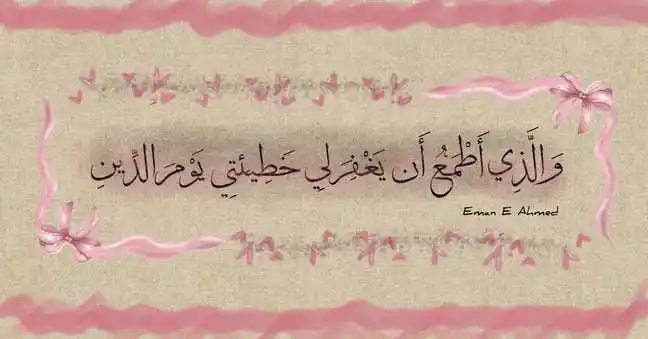 وَالَّذِي أَطْمَعُ أَن يَغْفِرَ لِي خَطِيئَتِي يَوْمَ الدِّينِ
Eman E Ahmed